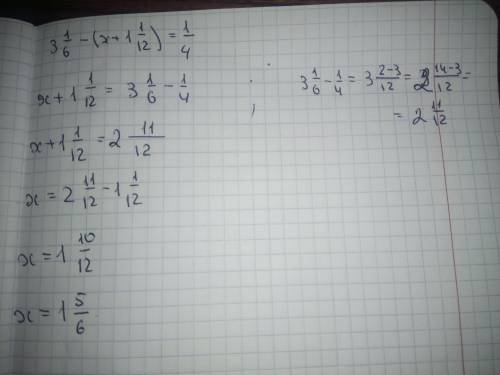 3 1/6 − (x + 1 1/12) = 1/4
x + 1 1/12 = 3 1/6 − 1/4
x + 1 1/12 = 2 11/12
x = 2 11/12 − 1 1/12
x = 1 10/12
x = 1 5/6
3 1/6 − 1/4 = 3 (2−3)/12 = 2 (14−3)/12 =
= 2 11/12